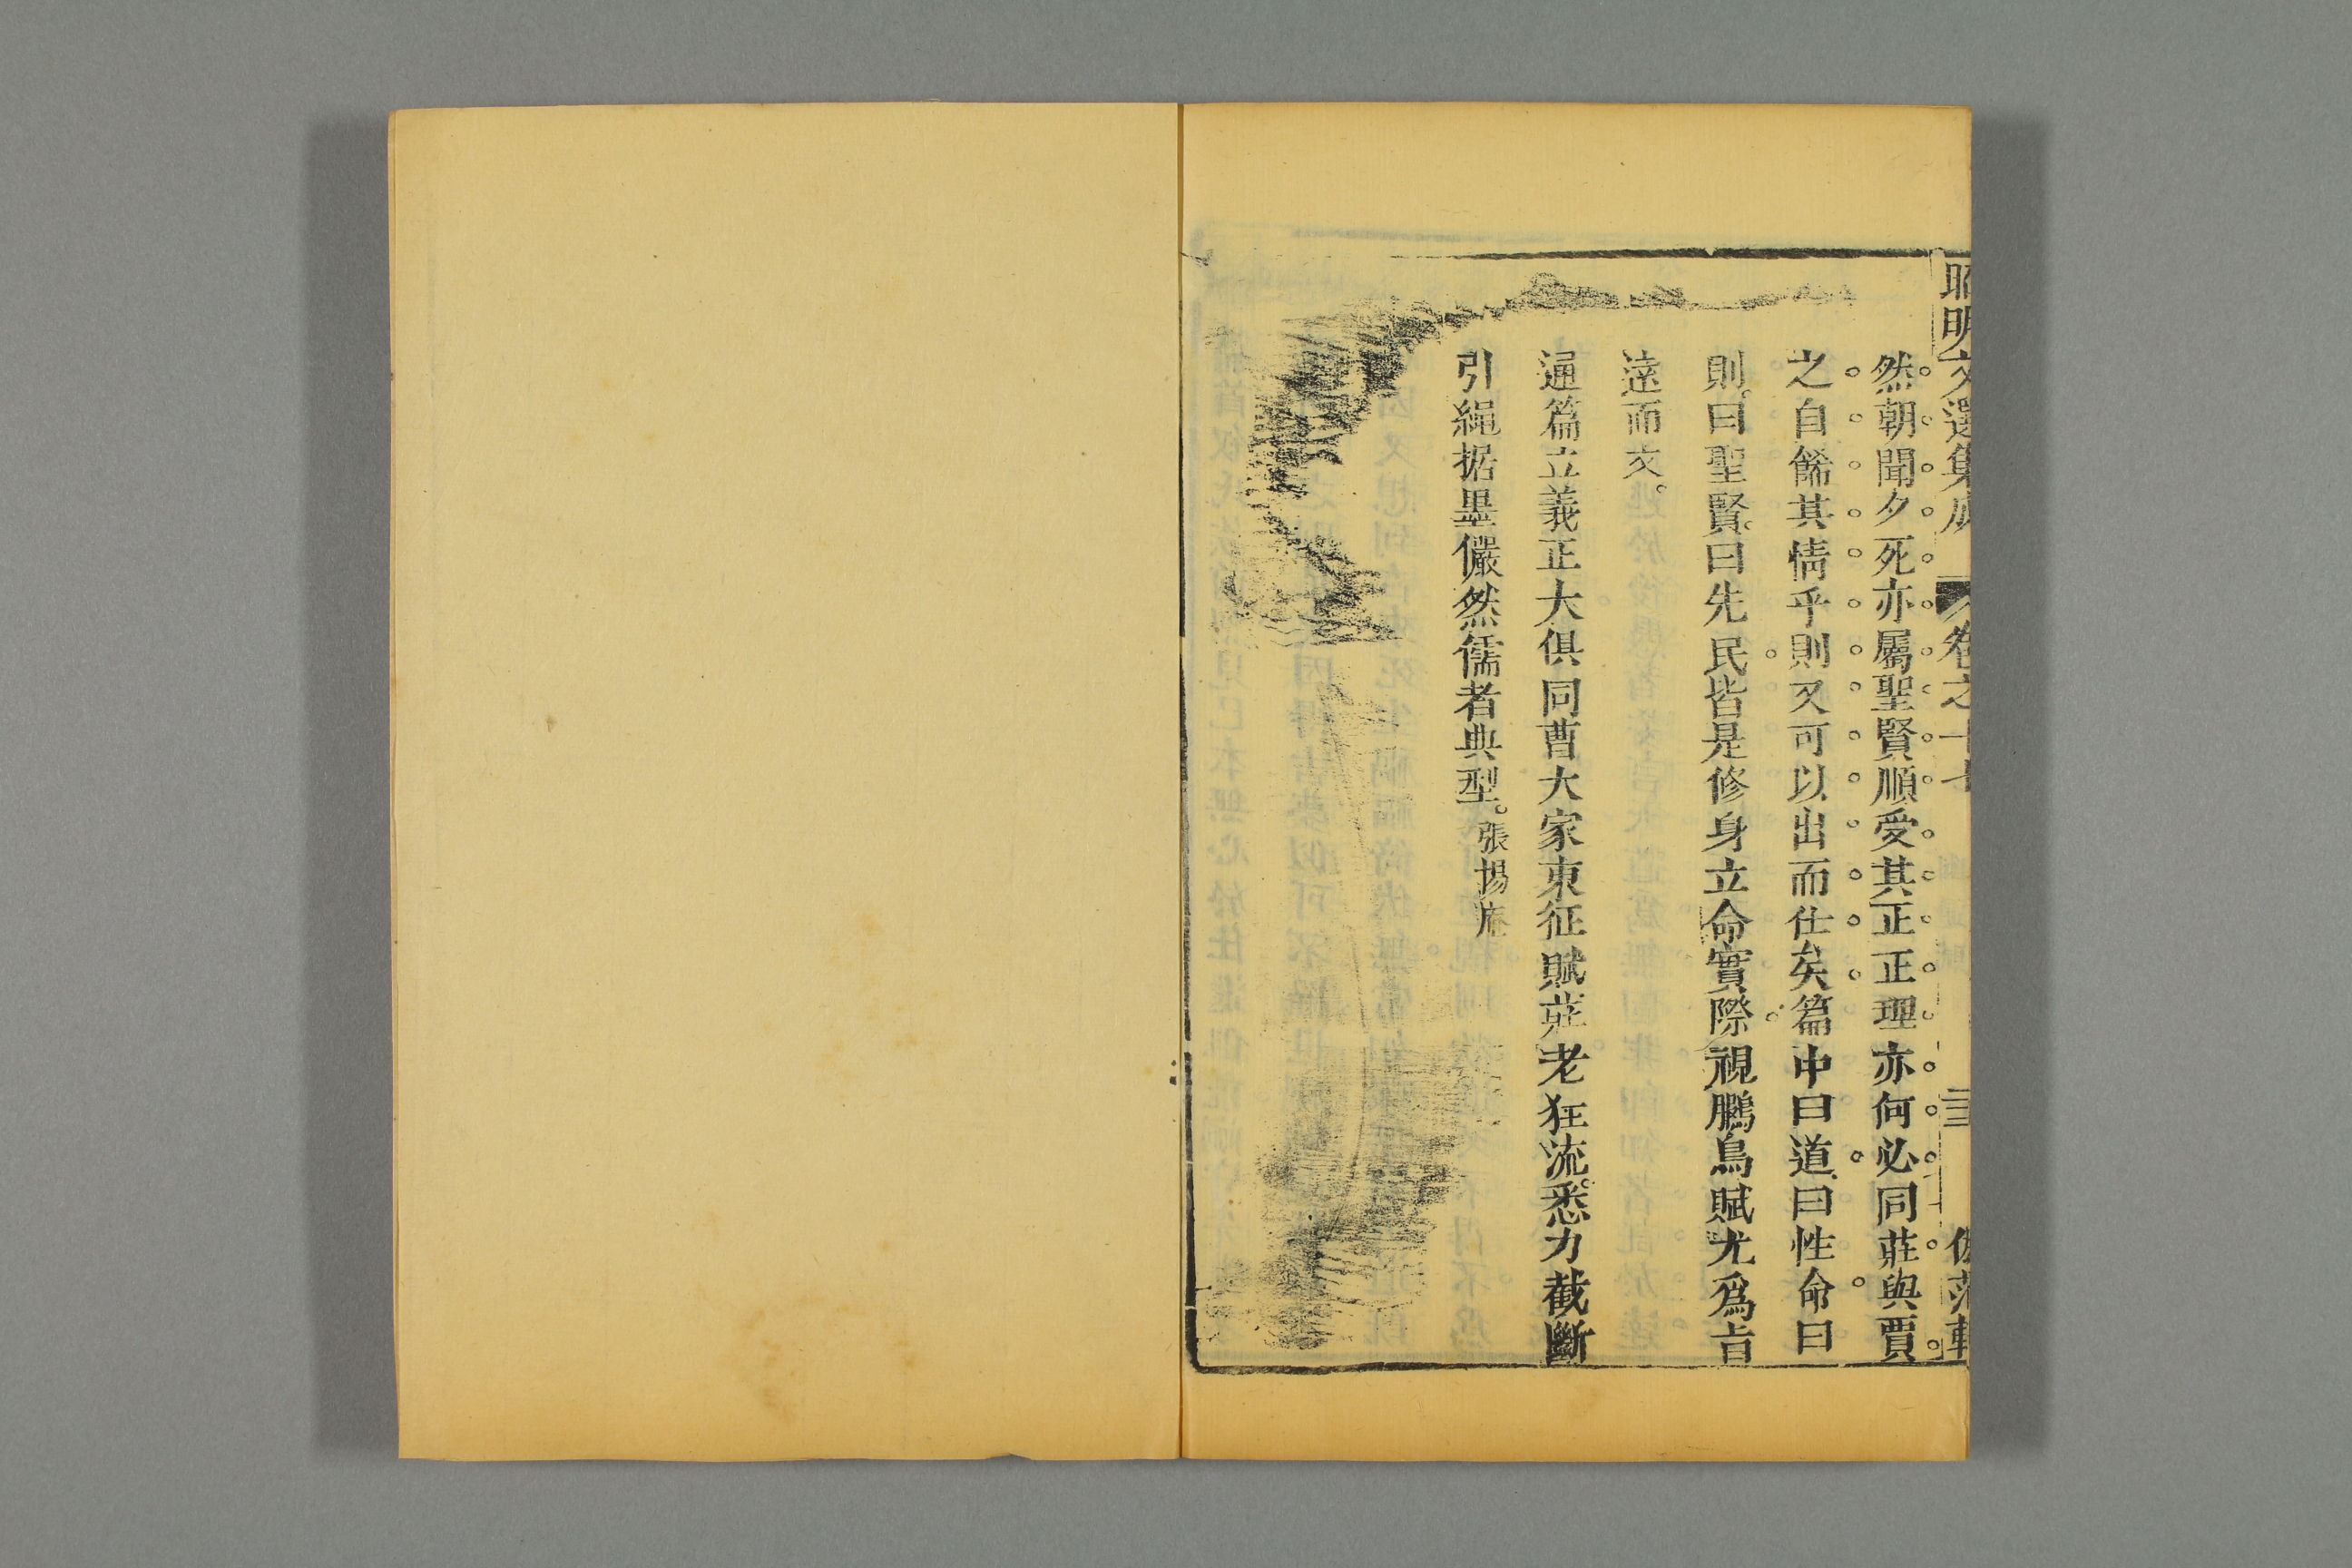 昭明文選集成 卷之十七 三三
然朝聞夕死亦屬聖賢順受其正正理亦何必同莊與賈
之自餙其情乎則又可以出而仕矣篇中曰道曰性命曰
則曰聖賢曰先民皆是修身立命實際視鵩鳥賦尤爲旨
遠而文。
通篇立義正大俱同曹大家東征賦莊老狂流悉力截斷
引繩据墨儼然儒者典型。張惕庵